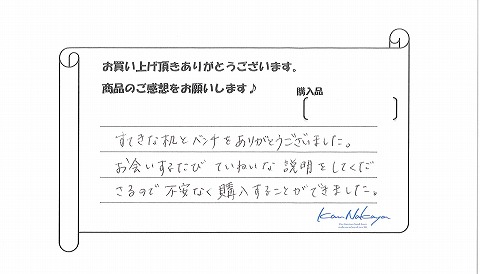 お買い上げ頂きありがとうございます。
商品のご感想をお願いします♪
購入品
すてきな机とベンチをありがとうございました。
お会いするたび ていねいな 説明をしてくだ
さるので 不安なく購入することができました。